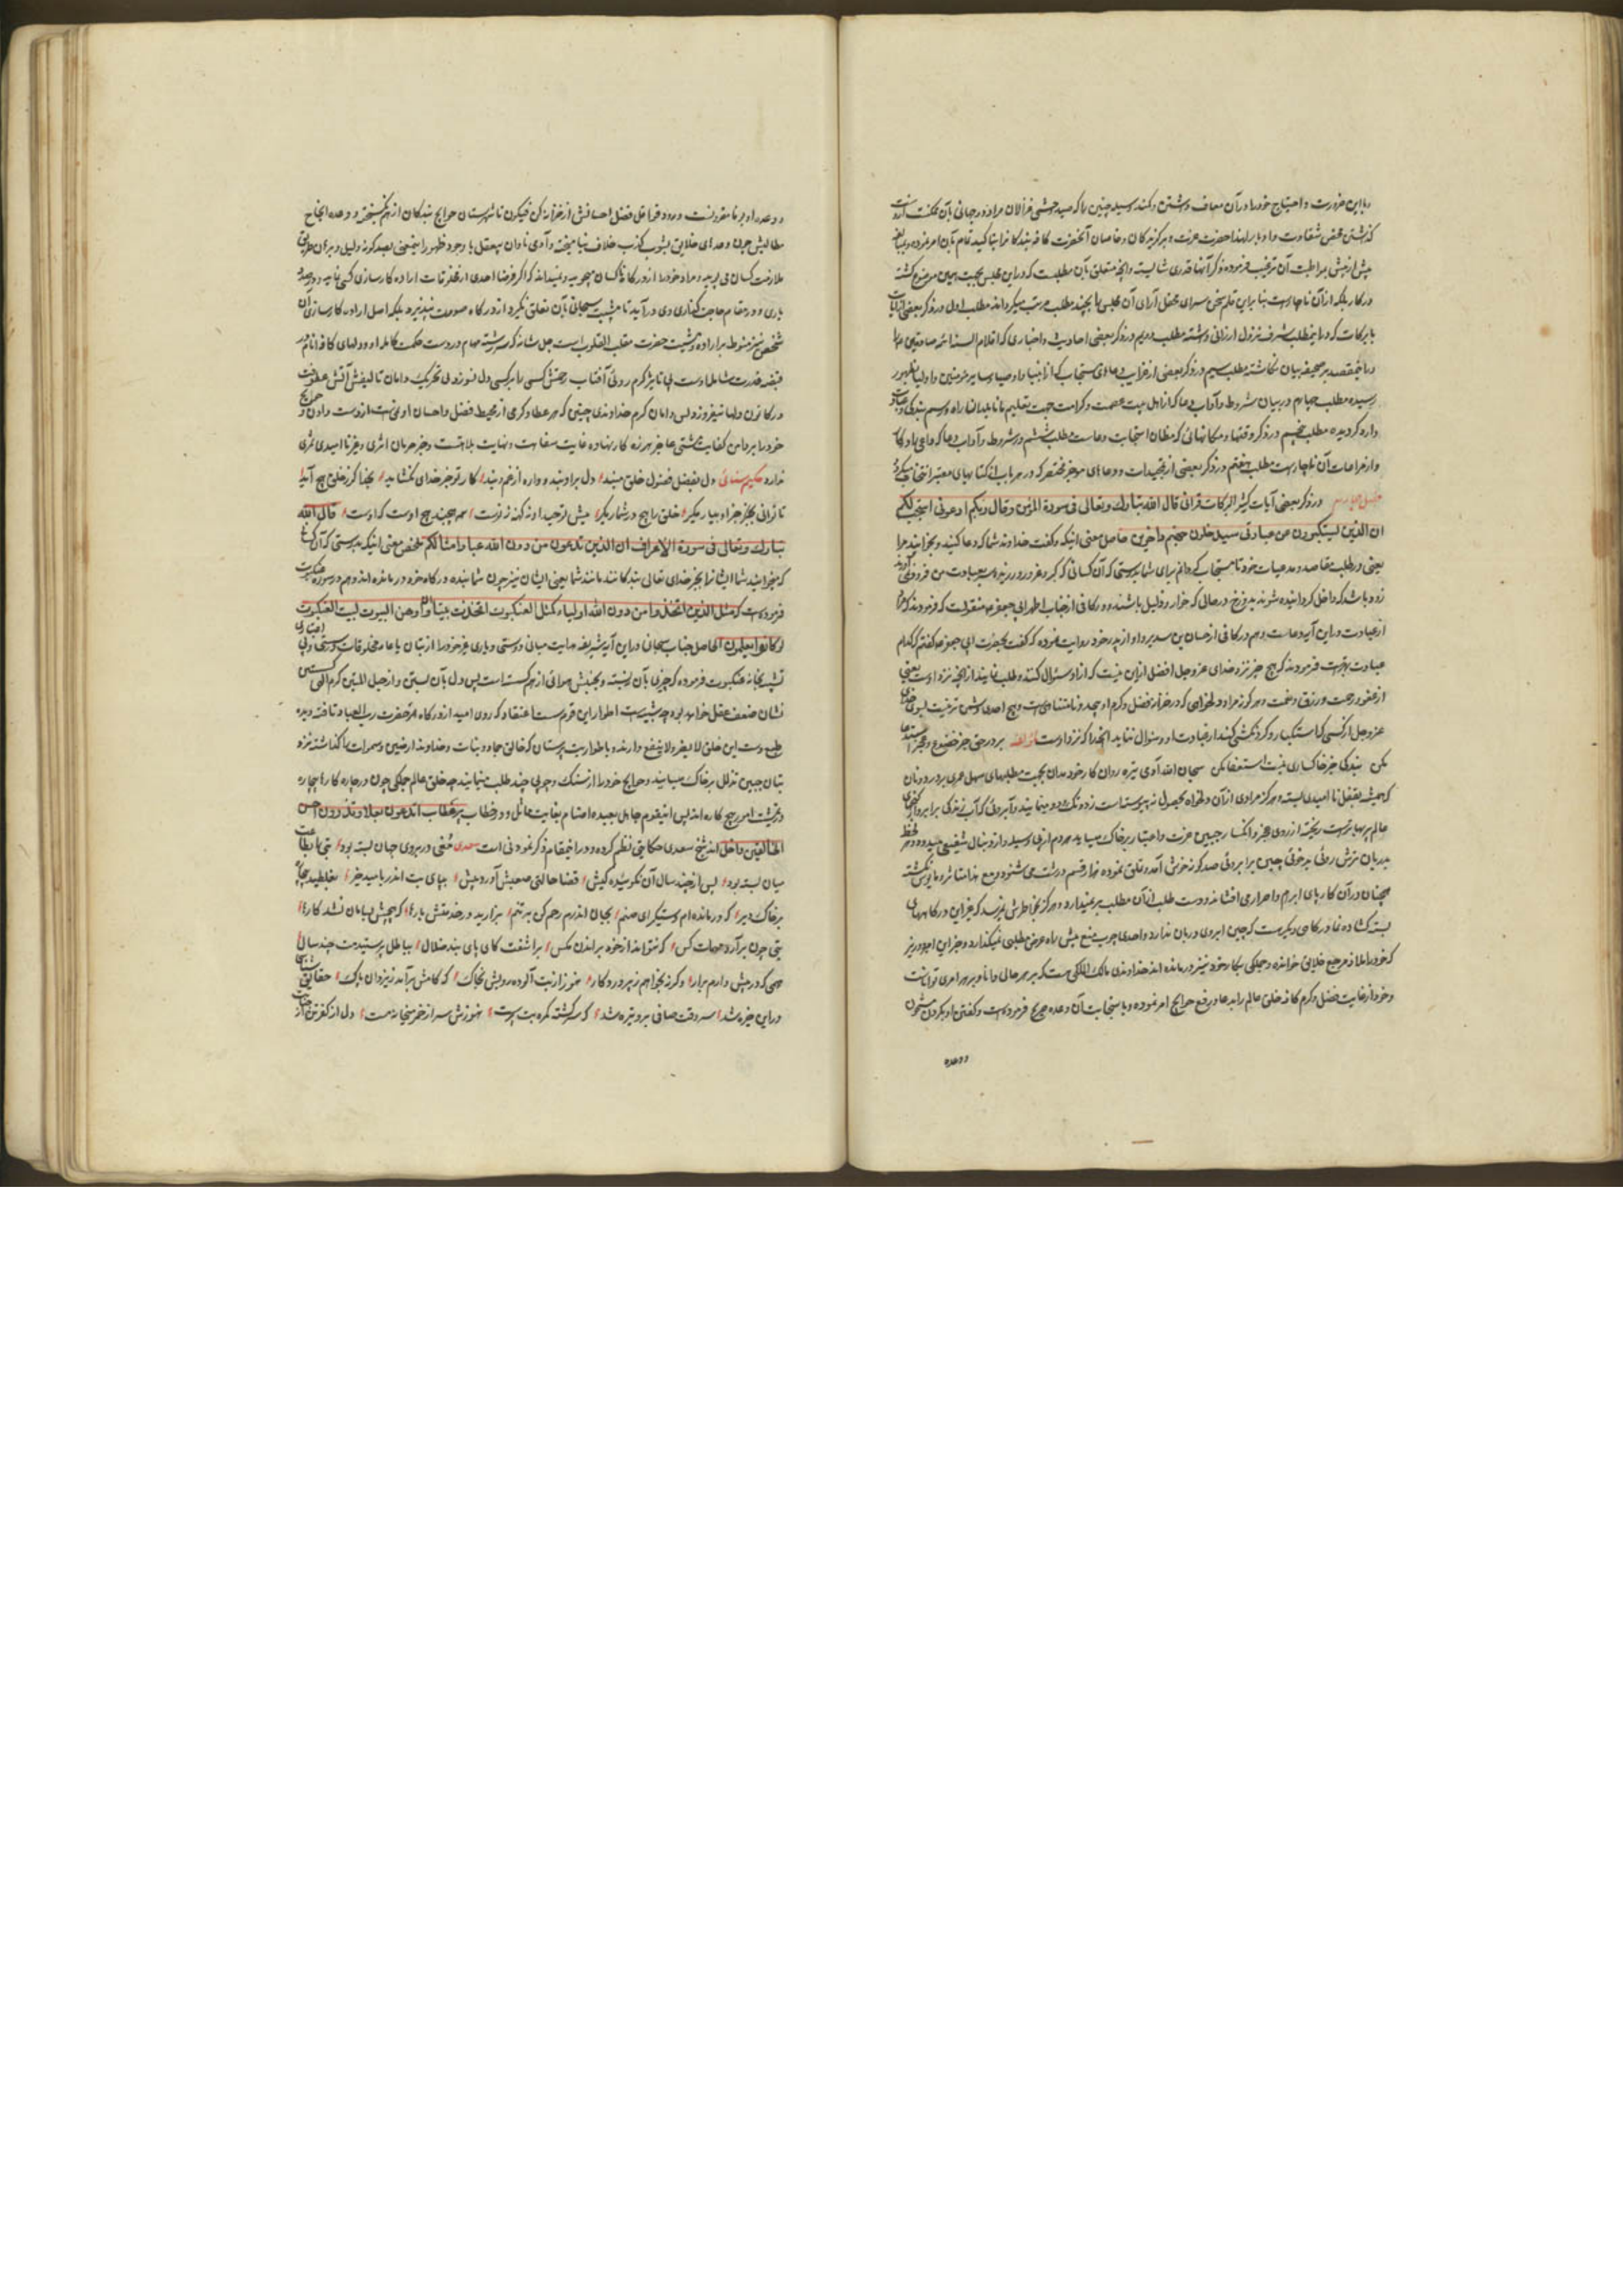 با این ضرورت و احتیاج خود را در آن معاف داشتن و کمند وسیله چنین را که صید وحشی غزالان مراد دو جهانی بآن ممکنست از دست
گذشتن محض شقاوت و ادبار لهذا حضرت عزت و برگزیدگان و خاصان آنحضرت کافه بندگانرا بتاکید تمام بآن امر نموده و مبالغه
بیش از پیش بمواظبت آن ترغیب فرموده ذکر آنها قدری شایسته و آنچه متعلق بآن مطلبست که در این مجلس بجهت همین موضوع گشته
در کار بلکه از آن ناچارست بنابراین قلم سخن سرای محفل آرای آن مجلس را بچند مطلب مرتب میگرداند مطلب اول در ذکر بعضی از آیات
بابرکات که در اینمطلب شرف نزول ارزانی داشته مطلب دویم در ذکر بعضی احادیث و اخباری که اقلام السنه ائمه صادقین
در اینمقصد بر صحیفه بیان نگاشته مطلب سیم در ذکر بعضی از غرایب دعاهای مستجاب که از انبیا و اوصیا و سایر مؤمنین و اولیا بظهور
رسیده مطلب چهارم در بیان شروط و آداب دعا که از اهل بیت عصمت و کرامت جهت تعلیم ما نابلدان راه و رسم بندگی
وارد گردیده مطلب پنجم در ذکر وقتها و مکانهائی که مظان استجابت دعاست مطلب ششم در شروط و آداب دعا که داعی را در کار
و از مراعات آن ناچارست مطلب هفتم در ذکر بعضی از تمجیدات و دعاهای موجز مختصر که در هر باب از کتابهای معتبر انتخاب میگردد
در ذکر بعضی آیات کثیر البرکات قرآنی قال الله تبارک و تعالی فی سورة المؤمن و قال ربکم ادعونی استجب لکم
ان الذین یستکبرون عن عبادتی سیدخلون جهنم داخرین حاصل معنی اینکه و گفت خداوند شما که دعا کنید و بخوانید مرا
یعنی در طلب مقاصد و مدعیات خود تا مستجاب گردانم برای شما بدرستی که آن کسانی که کبر و غرور ورزیده بعبادت من فرود نمی آیند
زود باشد که داخل گردانیده شوند بدوزخ در حالی که خوار و ذلیل باشند و در کافی از جناب اطهر ابی جعفر منقولست که فرمودند که مراد
از عبادت در این آیه دعاست و هم در کافی از حسان بن سدیر و او از پدر خود روایت نموده که گفت بحضرت ابی جعفر گفتم که کدام
عبادت بهترست فرمودند که هیچ چیز نزد خدای عز و جل افضل از این نیست که از او سئوال کنند و طلب نمایند از آنچه نزد اوست یعنی
از عفو و رحمت و رزق و نعمت و هر گونه مراد و دلخواهی که در خزانه فضل و کرم او بیحد و نامتناهی است و هیچ احدی دشمن تر نیست بسوی خدای
عز و جل از کسی که استکبار و گردنکشی کند از عبادت او و سئوال ننماید آنچه را که نزد اوست لمؤلفه بر در حق جز خضوع و عجز استدعا
مکن بندگی جز خاکساری نیست استغنا مکن سبحان الله آدمی تیره روان کار خود ندان بجهت مطلبهای سهل عمری بر در دونان
که همیشه بقفل ناامیدی بسته و هرگز مرادی از آن دلخواه بحصول نه پیوسته است زده تک و دو مینماید و آبروئی که آب زندگی برابر
عالم پر بهاترست ریخته از روی عجز و انکسار جبین عزت و اعتبار بر خاک میساید هر دم از پی وسیله و از دنبال شفیعی میدود و هر لحظه
بدربان ترش روئی بدخوئی چین بر ابروئی صد گونه خوش آمد و تملق نموده هزار قسم درشت می شنود و مع هذا متاثر و مایوس نگشته
همچنان در آن کار پای ابرام و اصرار می افشاند و دست طلب از آن مطلب بر نمیدارد و هرگز بخاطرش نمیرسد که غیر این درگاههای
بسته گشاده نما درگاهی دیگرست که چین ابروی دربان ندارد و احدی چوب منع پیش راه عرض مطلبی نمیگذارد و جز این
که خود را ملاذ و مرجع خلایق خوانده و همگی بکار خود نیز درمانده اند خداوندی مالک الملکی هست که بر هر حالی دانا و بر هر امری تواناست
و خود از غایت فضل و کرم کافه خلق عالم را بدعا و رفع حوایج امر نموده و باستجابت آن وعده صریح فرموده است و گفتن او بکردن مشحون
و وعده
و وعده او بوفا مقرونست و ورود قوافل فضل احسانش از خزانه کن فیکون تا شهرستان حوایج بندگان از هم نگسیخته و وعده انجاح
مطالبش چون وعدهای خلایق بشوب کذب خلاف نیامیخته و آدمی نادان بیعقل با وجود ظهور اینمعنی بصد گونه دلیل و برهان طریق
ملازمت کسان می پوید و مراد خود را از درگاه ناکسان میجوید و نمیداند که اگر فرضا احدی از مخلوقات اراده کارسازی کسی نماید و در صدد
یاری و در مقام حاجت گذاری وی در آید تا مشیت سبحانی بآن تعلق نگیرد از درگاه صورت نپذیرد بلکه اصل اراده کارسازی آن
شخص نیز منوط باراده و مشیت حضرت مقلب القلوب است جل شانه که سررشته مهام در دست حکمت کامله او و دلهای کافه انام در
قبضه قدرت شامله اوست لهذا تا پرتو کرم روئی آفتاب رحمتش کسی را بر کسی دل نسوزد و بی تحریک دامان تالیفش آتش عطوفت
در کانون دلها نیفروزد پس دامان کرم خداوندی چنین که هر عطا و کرمی از محیط فضل و احسان او نمی است از دست دادن و حوایج
خود را بدامن کفایت مشتی عاجز هرزه کار نهاده غایت سفاهت و نهایت بلاهتست و بجز حرمان اثری و جز ناامیدی ثمری
ندارد حکیم سنائی دل بفضل فضول خلق مبند دل بر او بند و واره از غم و بند کار تو جز خدای نگشاید بخدا گر ز خلق هیچ آید
تا توانی بجز او بیار مگیر خلق را هیچ در شمار مگیر پیش توحید او نه کهنه نه نوست همه هیچند هیچ اوست که اوست قال الله
تبارک و تعالی فی سورة الاعراف ان الذین تدعون من دون الله عباد امثالکم ملخص معنی اینکه بدرستی که آن کسانی
که میخوانید شما ایشانرا بجز خدای تعالی بندگانند مانند شما یعنی ایشان نیز چون شما بنده درگاه خود درمانده اند و هم در سوره عنکبوت
فرموده است که مثل الذین اتخذوا من دون الله اولیاء کمثل العنکبوت اتخذت بیتا و ان اوهن البیوت لبیت العنکبوت
لو کانوا یعلمون الحاصل جناب سبحانی در این آیه شریفه هدایت مبانی دوستی و یاری غیر خود را از بتان یا عامه مخلوقات در سستی و بی اعتباری
تشبیه بخانه عنکبوت فرموده که بچیزی بآن بسته و بجنبش هوائی از هم گسسته است پس دل بآن بستن و از حبل المتین کرم الهی گسستن
نشان ضعف عقل خواهد بود چه شبیه است اطوار این قوم سست اعتقاد که روی امید از درگاه حضرت رب العباد تافته دیده
طمع بدست این خلق لا یضر و لا ینفع دارند و باطوار بت پرستان که خالق جماد و نبات و خداوند ارضین و سموات را گذاشته نزد
بتان جبین تذلل بر خاک میسایند و حوایج خود را از سنگ و چوبی چند طلب مینمایند چه خلق عالم جملگی چون در چاره کارها بیچاره
در تمشیت امور هیچ کاره اند پس اینقوم جاهل بعبده اصنام بغایت مماثل و در خطاب پر عتاب اتدعون بعلا و تذرون احسن
الخالقین داخل اند شیخ سعدی حکایتی نظم کرده و در اینمقام ذکر نمودنی است سعدی مغی در بروی جهان بسته بود بتی را بخدمت
میان بسته بود پس از چند سال آن نکوهیده کیش قضا حالتی صعبش آورد پیش بپای بت اندر بامید خیر بغلطید بیچاره
بر خاک دیر که درمانده ام دستگیر ای صنم بجان اندرم رحم کن بر تنم بزارید در خدمتش بارها که هیچش بسامان نشد کارها
بتی چون برآرد مهمات کس که نتواند از خود براندن مگس برآشفت کای پای بند ضلال بباطل پرستیدمت چند سال
مهمی که در پیش دارم برآر وگرنه بخواهم ز پروردگار هنوز از بت آلوده رویش بخاک که کامش برآمد ز یزدان پاک حقایق شناسی
در این خیره شد سر وقت صافی برو تیره شد که سرگشته گمره بت پرست هنوزش سر از خمر میخانه مست دل از کفر